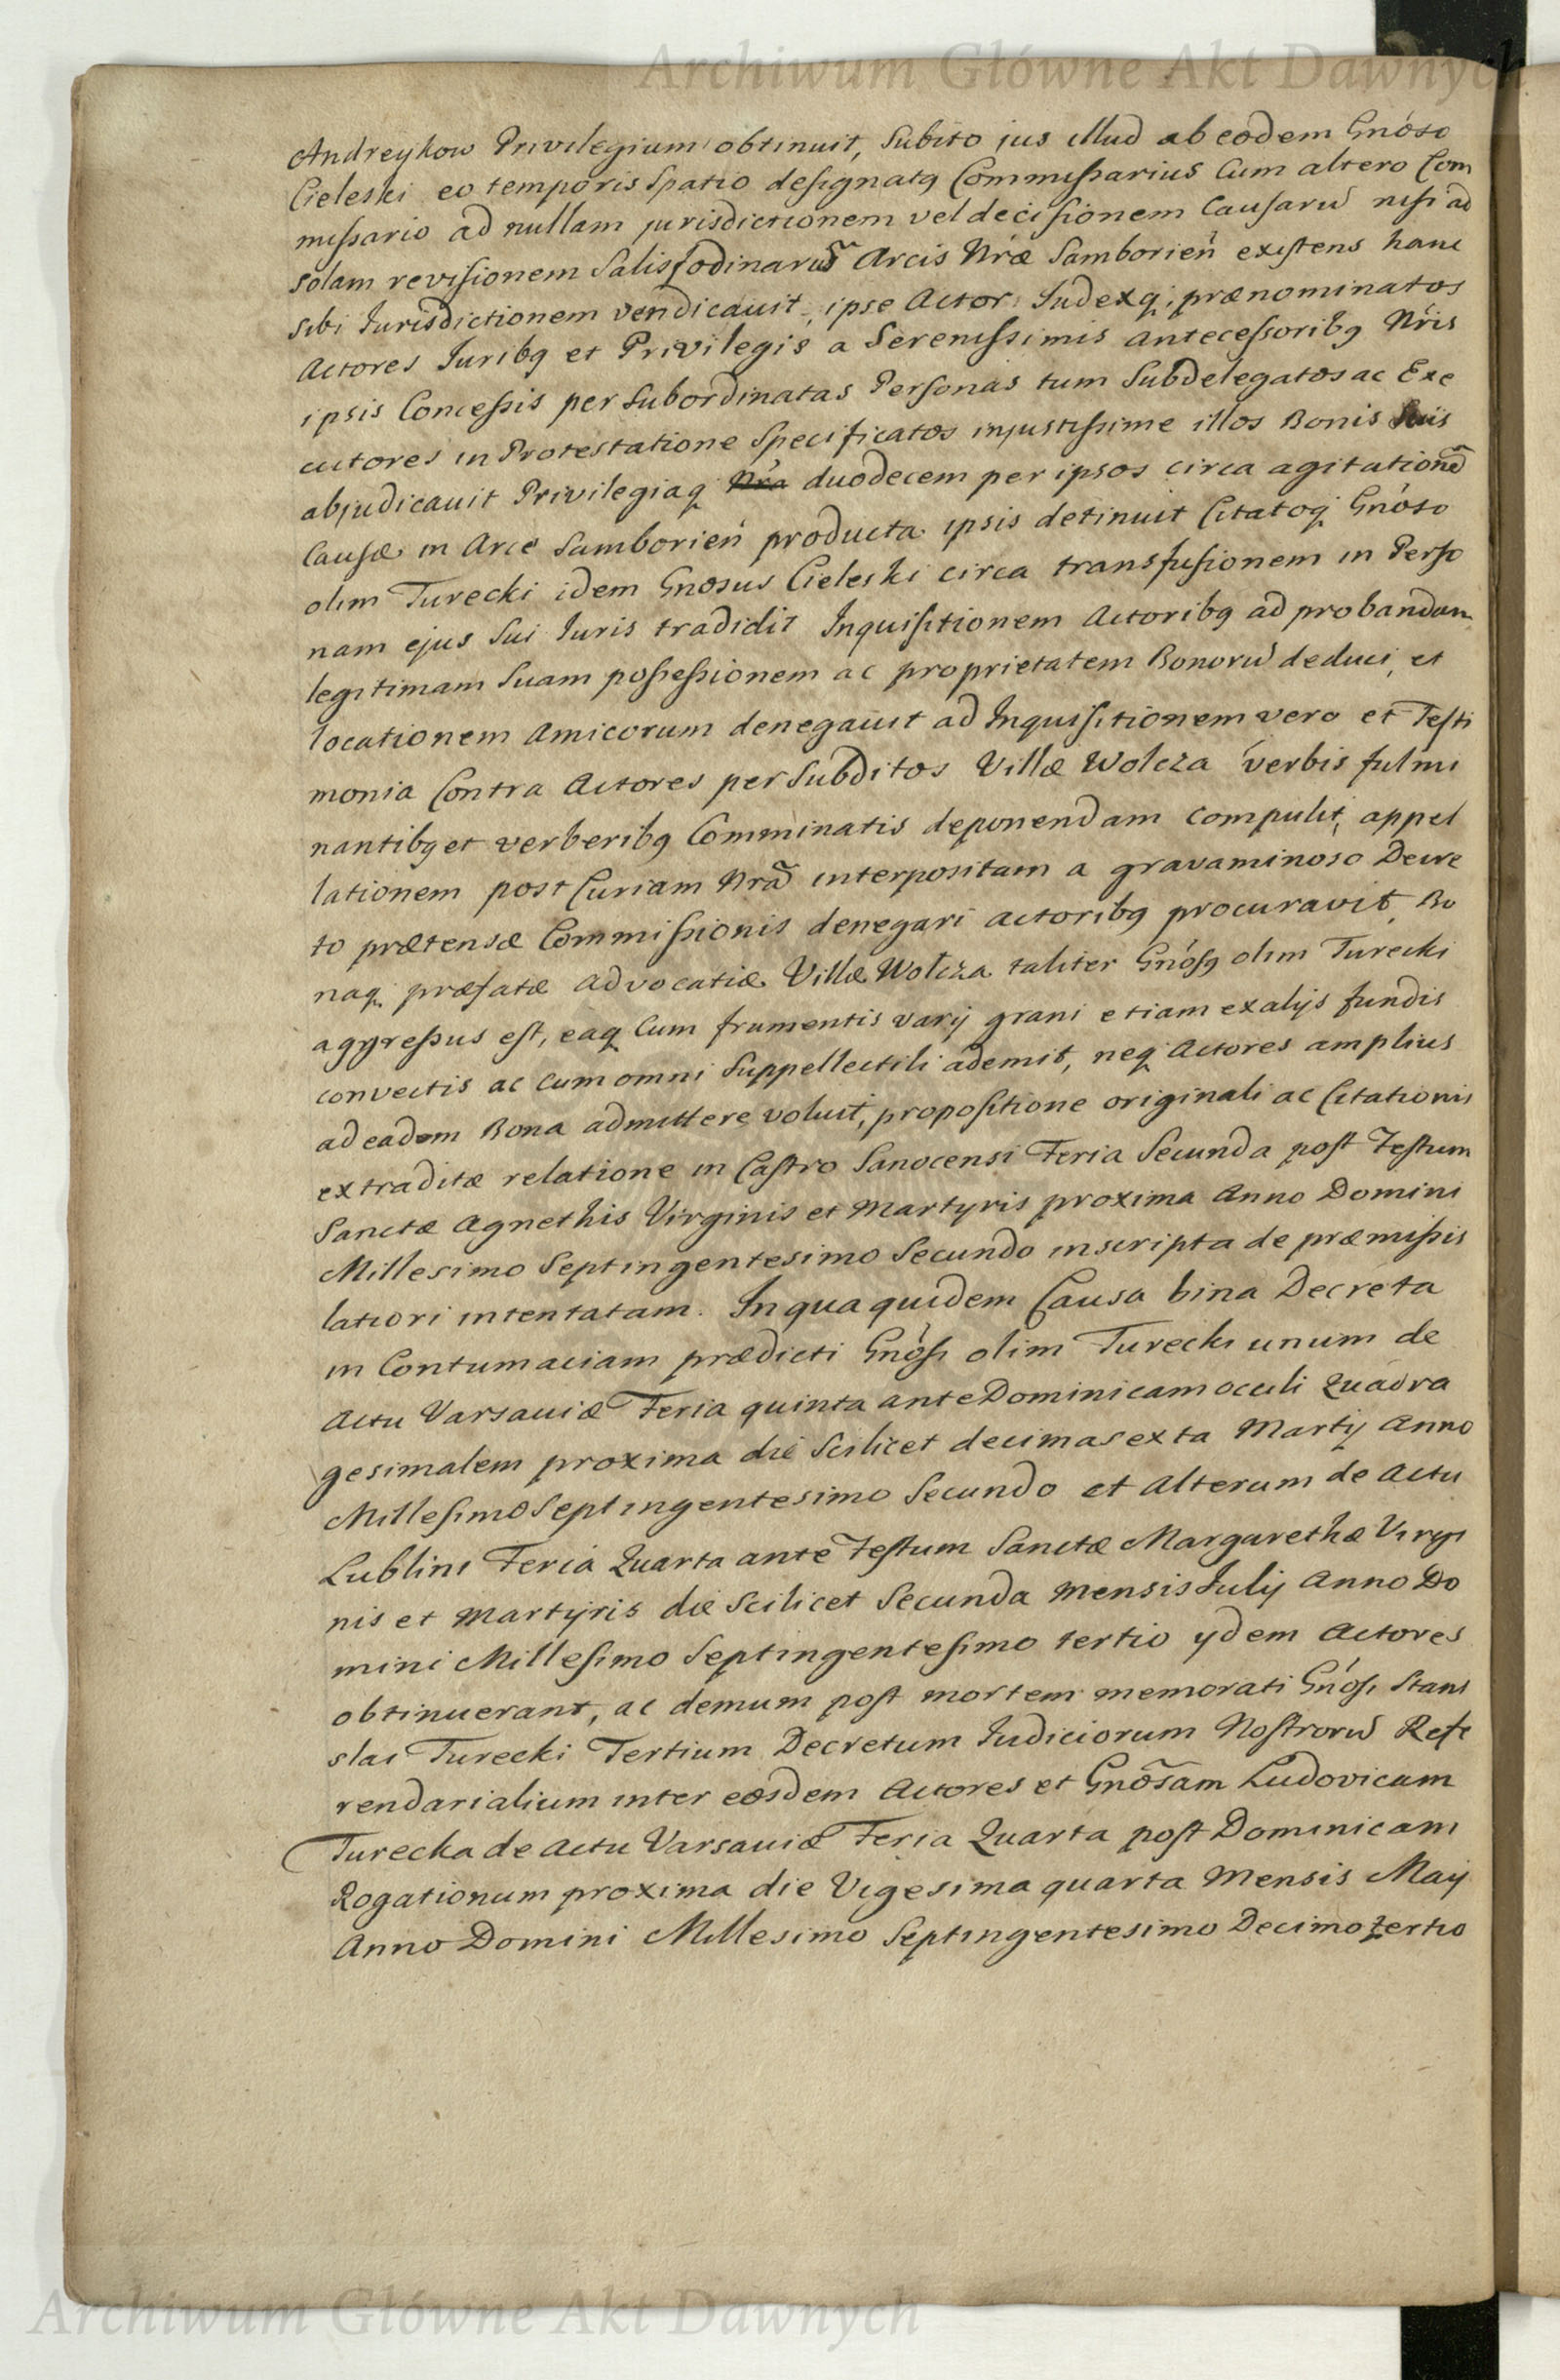 Archiwum Główne Akt Dawnych
Andreykow Privilegium obtinuit, Subito jus illud ab eodem Gnóso
Cieleski eo temporis Spatio designatq Commissarius Cum altero Com
missario ad nullam jurisdictionem vel decisionem Causarũ nisi ad
solam revisionem Salisfodinarũ Arcis Nræ Samborień existens hanc
sibi Jurisdictionem vendicauit, ipse Actor Judexq prænominatos
Actores Juribq et Privilegis a Serenissimis antecessoribq Nris
ipsis Concessis per Subordinatas Personas tum Subdelegatos ac Exe
cutores in Protestatione Specificatos injustissime illos Bonis Suis
abjudicauit Privilegiaq Nra duodecem per ipsos circa agitationẽ
Causæ in Arce Samborień producta ipsis detinuit Citatoq Gnóso
olim Turecki idem Gnosus Cieleski circa transfusionem in Perso
nam ejus Sui Juris tradidit Inquisitionem Actoribq ad probandam
legitimam Suam possessionem ac proprietatem Bonorũ deduci, et
locationem Amicorum denegauit ad Inquisitionem vero et Testi
monia Contra Actores per Subditos Villæ Wolcza verbis fulmi
nantibq et verberibq Comminatis deponendam compulit, appel
lationem post Curiam Nrã interpositam a gravaminoso Decre
to prætensæ Commissionis denegari actoribq procuravit, Bo
naq præfatæ advocatiæ Villæ Wolcza taliter Gnósq olim Turecki
aggressus est, eaq Cum frumentis varij grani etiam ex alijs fundis
convectis ac cum omni Suppellectili ademit, neq Actores amplius
ad eadem Bona admittere voluit, propositione originali ac Citationis
extraditæ relatione in Castro Sanocensi Feria Secunda post Festum
Sanctæ Agnethis Virginis et Martyris proxima Anno Domini
Millesimo Septingentesimo Secundo inscripta de præmissis
latiori intentatam. In qua quidem Causa bina Decreta
in Contumaciam prædicti Gnósi olim Turecki unum de
Actu Varsauiæ Feria quinta ante Dominicam oculi Quadra
gesimalem proxima die Scilicet decima sexta Martij Anno
Millesimo Septingentesimo Secundo et alterum de Actu
Lublini Feria Quarta ante Festum Sanctæ Margarethæ Virgi
nis et Martyris die Scilicet Secunda Mensis Julij Anno Do
mini Millesimo Septingentesimo tertio ydem Actores
obtinuerant, ac demum post mortem memorati Gnósi Stani
slai Turecki Tertium Decretum Judiciorum Nostrorũ Refe
rendarialium inter eosdem Actores et Gnõsam Ludovicam
Turecka de Actu Varsauiæ Feria Quarta post Dominicam
Rogationum proxima die Vigesima quarta Mensis Maij
Anno Domini Millesimo Septingentesimo Decimo tertio
Archiwum Główne Akt Dawnych